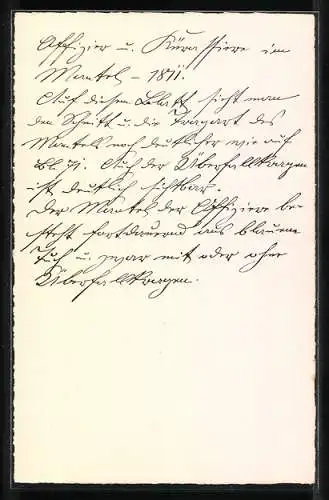 Offizier u. Kürassiere im
Mantel - 1811.
Auf diesem Blatt sieht man
den Schnitt u. die Tragart des
Mantels noch deutlicher wie auf
Bl. 71. Auch der Überfallkragen
ist deutlich sichtbar.
Der Mantel der Offiziere be-
steht fortdauernd aus blauem
Tuch u. zwar mit oder ohne
Überfallkragen.